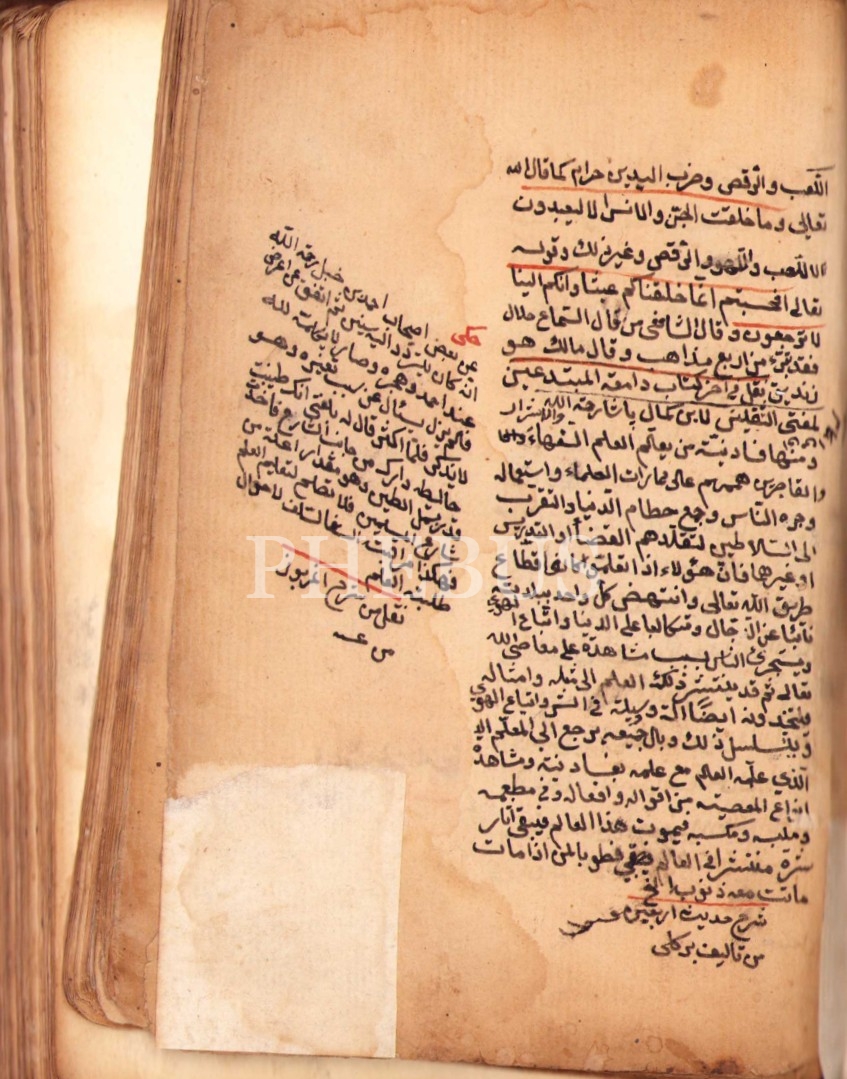 اللعب والرقص وضرب اليدين حرام كما قال الله
تعالى وما خلقت الجن والانس الا ليعبدون
لا للعب واللهو والرقص وغير ذلك وقوله
تعالى افحسبتم انما خلقناكم عبثا وانكم الينا
لا ترجعون وقال الشافعى من قال السماع حلال
فقد تبرئ من اربع مذاهب وقال مالك هو
زنديق نقل من اخر كتاب دامغة المبتدعين
لمفتى الثقلين لابن كمال پاشا رحمة الله
ومنها فساد نية من يعلم العلم السفهاء والاشرار
والقاصرين هممهم على ممارات العلماء واستمالة
وجوه الناس وجمع حطام الدنيا والتقرب
الى السلاطين لتقلدهم القضاء او التدريس
او غيرها فان هؤلاء اذا تعلموا كانوا قطاع
طريق الله تعالى وانتهض كل واحد ببلدته
نائبا عن الدجال وتكالبا على الدنيا واتباع الهوى
ويستجرئ الناس بسبب مشاهدة على معاصى الله
تعالى ثم قد ينتشر ذلك العلم الى مثله وامثاله
فيتخذونه ايضا الة ووسيلة فى الشر واتباع الهوى
ويتسلسل ذلك ووبال جميعه يرجع الى المعلم
الذي علمه العلم مع علمه بفساد نيته ومشاهدة
انواع المعصية من اقواله وافعاله وفى مطعمه
وملبسه ومكسبه فيموت هذا العالم فيبقى آثار
شره منتشرا فى العالم فطوبا لمن اذا مات
ماتت معه ذنوبه الخ
شرح حديث اربعين
من تاليف بركلى
حكى
عن بعض اصحاب احمد بن حنبل رحمه الله
انه كان يتردد اليه سنين ثم اتفق ان اعرض
عنه احمد وهجره وصار لا يكلمه
فلم يزل يسئال عن سبب تغيره وهو
لا يذكر فلما اكثر قال له بلغنى انك طينت
حائط دارك من جانب الشارع فاخذت
قدر سمك الطين وهو مقدار انملة من
شارع المسلمين فلا تصلح لتعليم العلم
فهكذا مراقبة السلف لاحوال
طلبة العلم
نقل من شرح
من عسه
PHEBUS